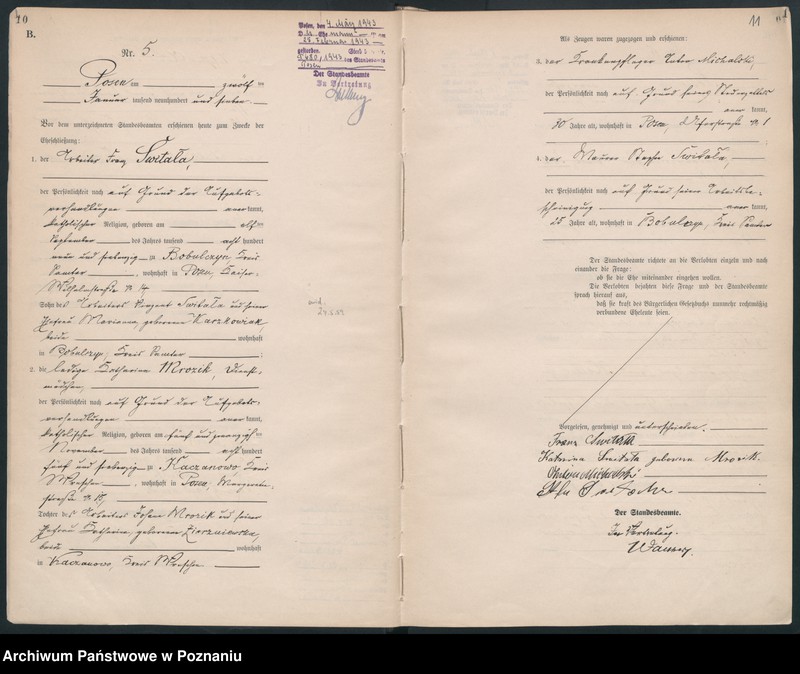 10
B.
Nr. 5.
Posen, den 4. März 1943
D. Ehemann
28. Februar 1943
gestorben
480/1943 des Standesamts
Posen
Der Standesbeamte
In Vertretung
Posen am zwölften
Januar tausend neunhundert und
Vor dem unterzeichneten Standesbeamten erschienen heute zum Zwecke der
Eheschließung:
1. der Arbeiter Franz Switala,
der Persönlichkeit nach auf Grund der Aufgebots-
verhandlungen anerkannt,
katholischer Religion, geboren am elften
September des Jahres tausend acht hundert
neun und siebenzig zu Bobulczyn Kreis
Samter, wohnhaft in Posen, Kaiser-
Wilhelmstraße
Sohn des Arbeiters Switala und seiner
Ehefrau Marianna, geborene Kaczkowiak,
beide wohnhaft
in Bobulczyn, Kreis Samter;
2. die ledige Katharina Mrozik, Dienst-
mädchen,
der Persönlichkeit nach auf Grund der Aufgebots-
verhandlungen anerkannt,
katholischer Religion, geboren am fünf und zwanzigsten
November des Jahres tausend acht hundert
fünf und siebenzig zu Kaczanowo, Kreis
Wreschen, wohnhaft in Posen,
straße
Tochter des Arbeiters Mrozik und seiner
Ehefrau Katharina, geborene
beide wohnhaft
in Kaczanowo, Kreis Wreschen
11
Als Zeugen waren zugezogen und erschienen:
3. der Krankenpfleger Anton Michalski,
der Persönlichkeit nach auf Grund seines
anerkannt,
30 Jahre alt, wohnhaft in Posen,
4. der Maurer Switala,
der Persönlichkeit nach auf Grund seiner Arbeitsbe-
scheinigung anerkannt,
25 Jahre alt, wohnhaft in Bobulczyn, Kreis Samter
Der Standesbeamte richtete an die Verlobten einzeln und nach
einander die Frage:
ob sie die Ehe miteinander eingehen wollen.
Die Verlobten bejahten diese Frage und der Standesbeamte
sprach hierauf aus,
daß sie kraft des Bürgerlichen Gesetzbuchs nunmehr rechtmäßig
verbundene Eheleute seien.
Vorgelesen, genehmigt und unterschrieben.
Franz Switala
Katarina Switala geborene Mrozik.
Michalski
Der Standesbeamte.
In Vertretung.
Archiwum Państwowe w Poznaniu